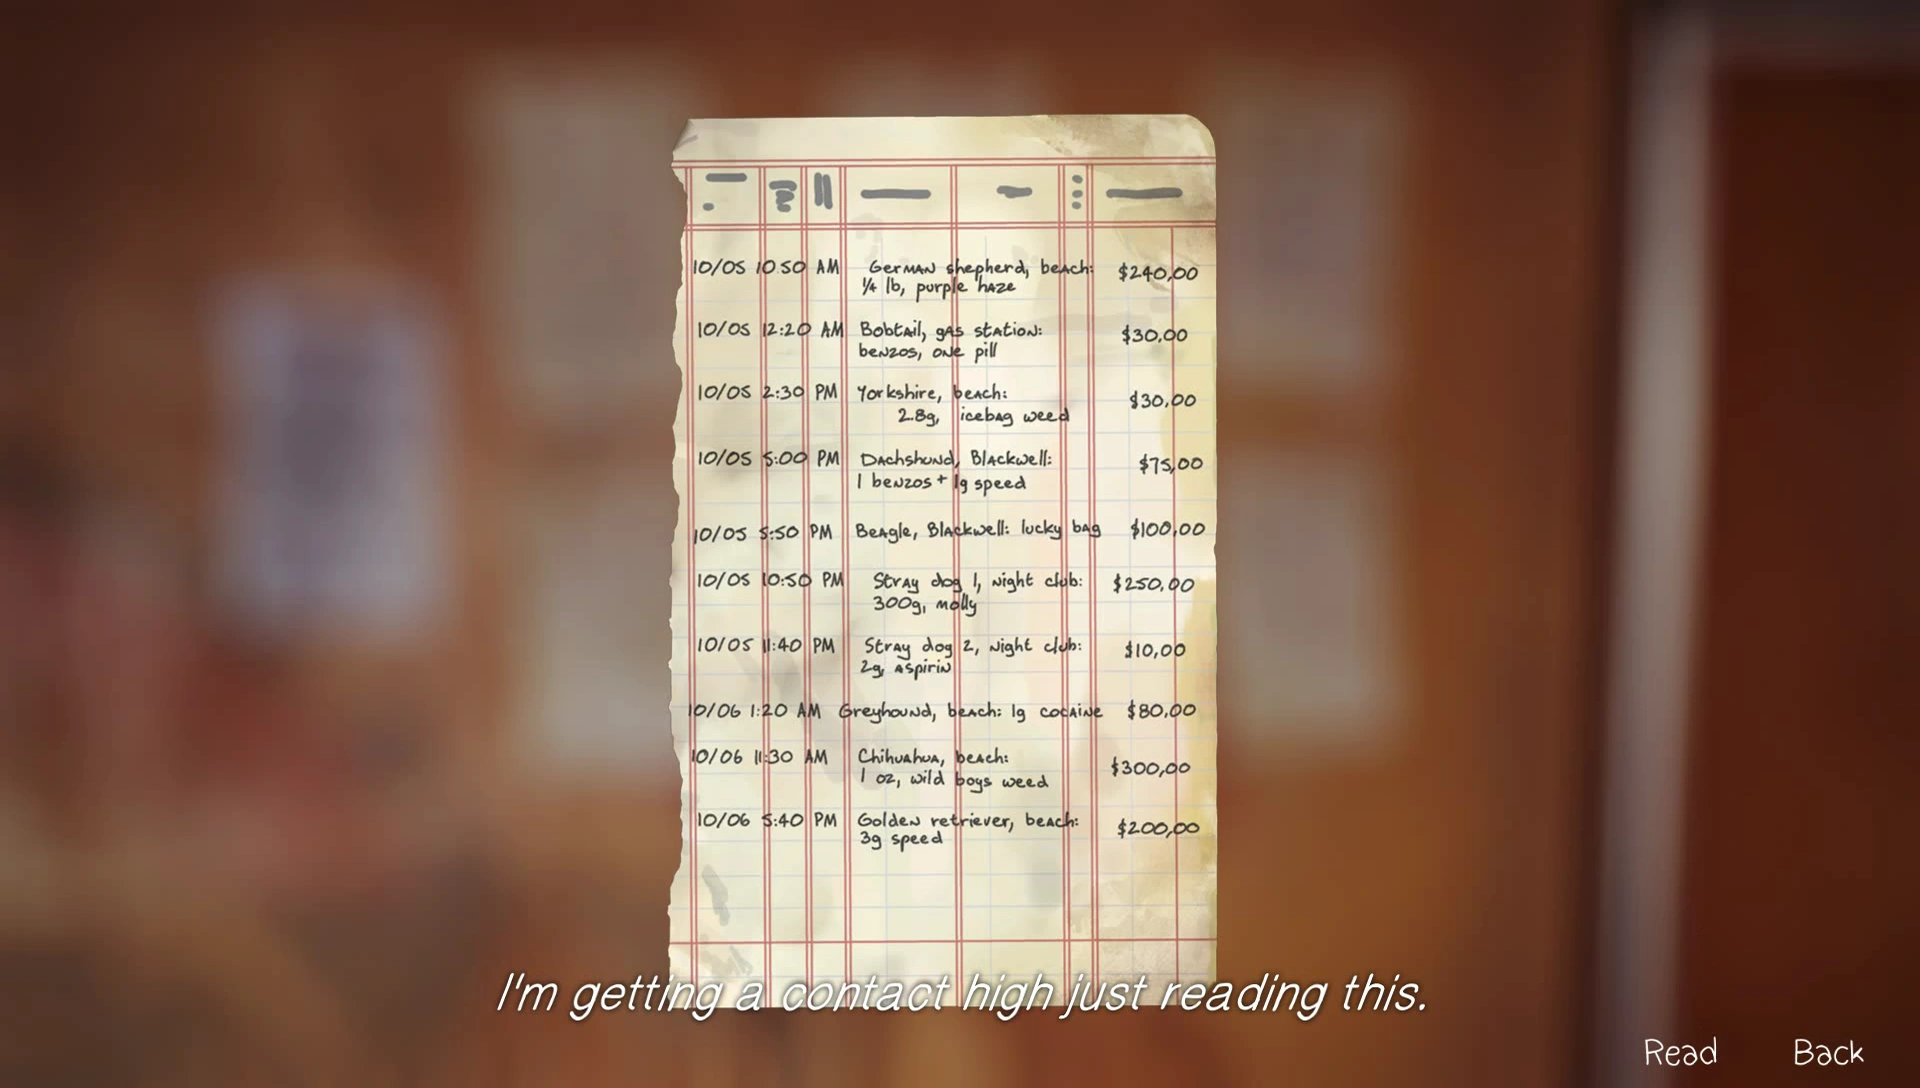 10/05 10:50 AM German shepherd, beach: $240,00
1/4 lb, purple haze
10/05 12:20 AM Bobtail, gas station: $30,00
benzos, one pill
10/05 2:30 PM Yorkshire, beach: $30,00
2.8g, icebag weed
10/05 5:00 PM Dachshund, Blackwell: $75,00
1 benzos + 1g speed
10/05 5:50 PM Beagle, Blackwell: lucky bag $100,00
10/05 10:50 PM Stray dog 1, night club: $250,00
300g, molly
10/05 11:40 PM Stray dog 2, night club: $10,00
2g, aspirin
10/06 1:20 AM Greyhound, beach: 1g cocaine $80,00
10/06 11:30 AM Chihuahua, beach: $300,00
1 oz, wild boys weed
10/06 5:40 PM Golden retriever, beach: $200,00
3g speed
I'm getting a contact high just reading this.
Read Back